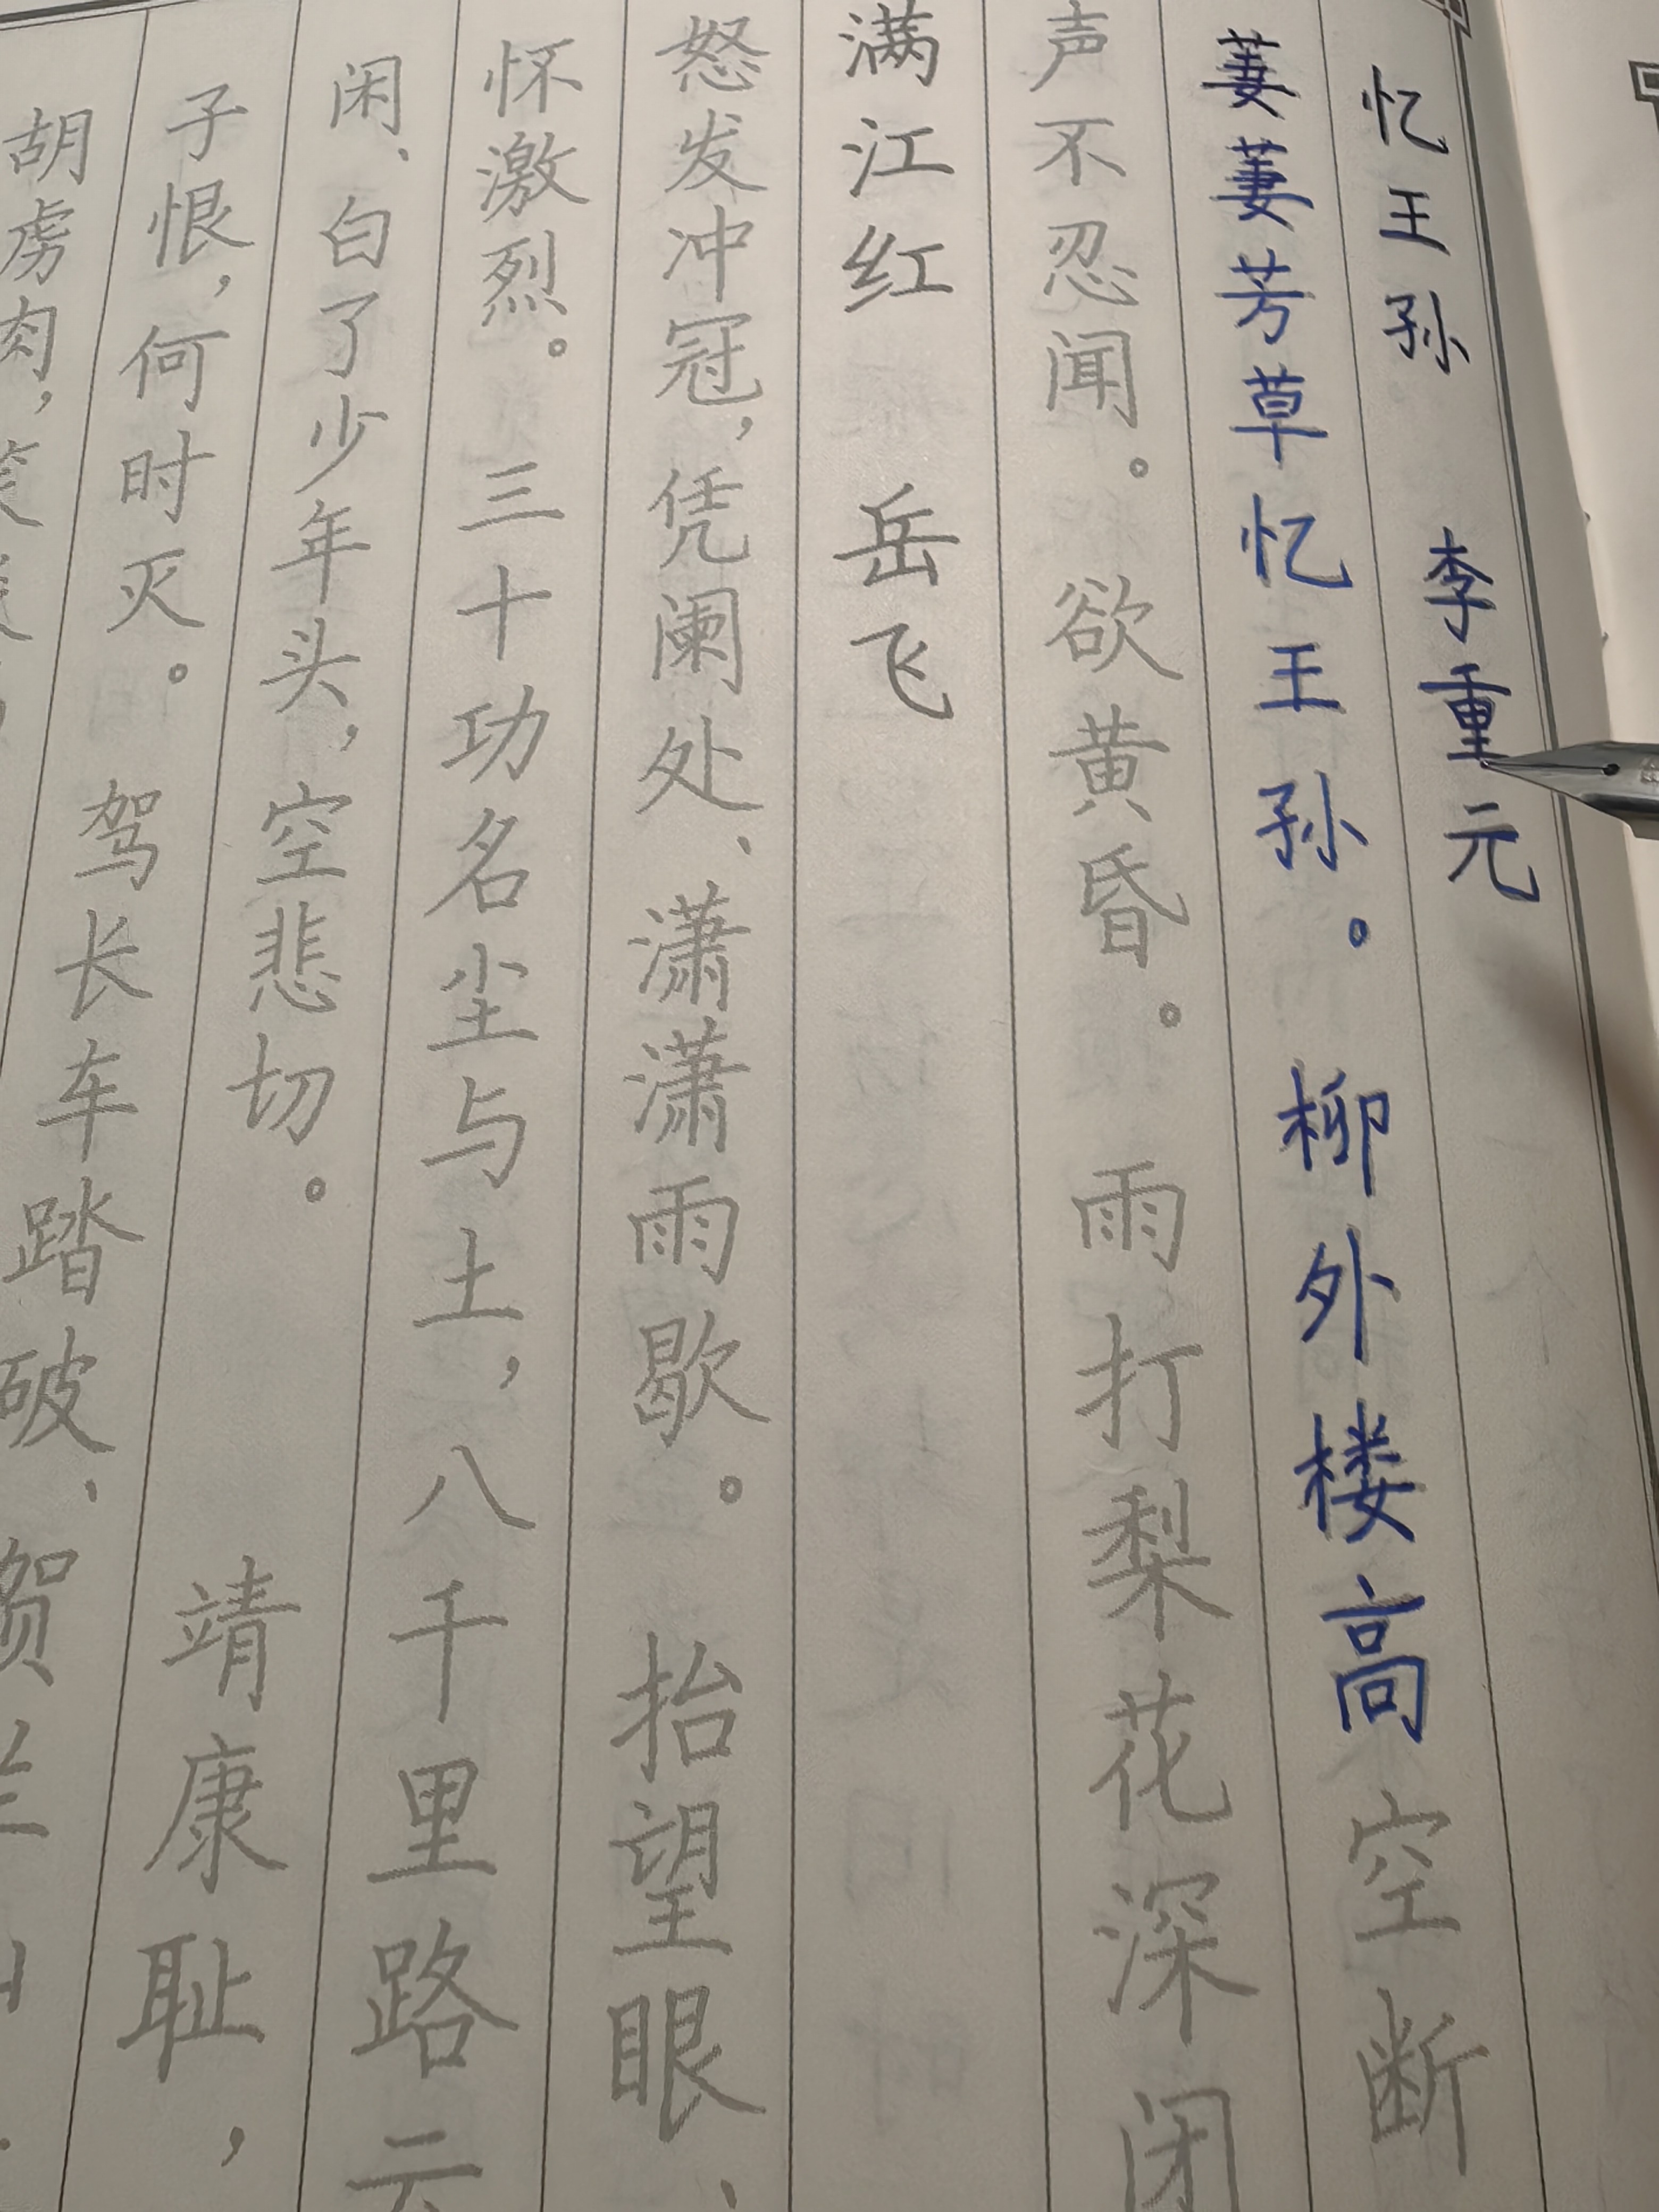 忆王孙 李重元
萋萋芳草忆王孙。柳外楼高空断
声不忍闻。欲黄昏。雨打梨花深闭
满江红 岳飞
怒发冲冠，凭阑处、潇潇雨歇。抬望眼、
怀激烈。三十功名尘与土，八千里路云
闲、白了少年头，空悲切。 靖康耻，
子恨，何时灭。驾长车踏破、贺
胡虏肉，笑